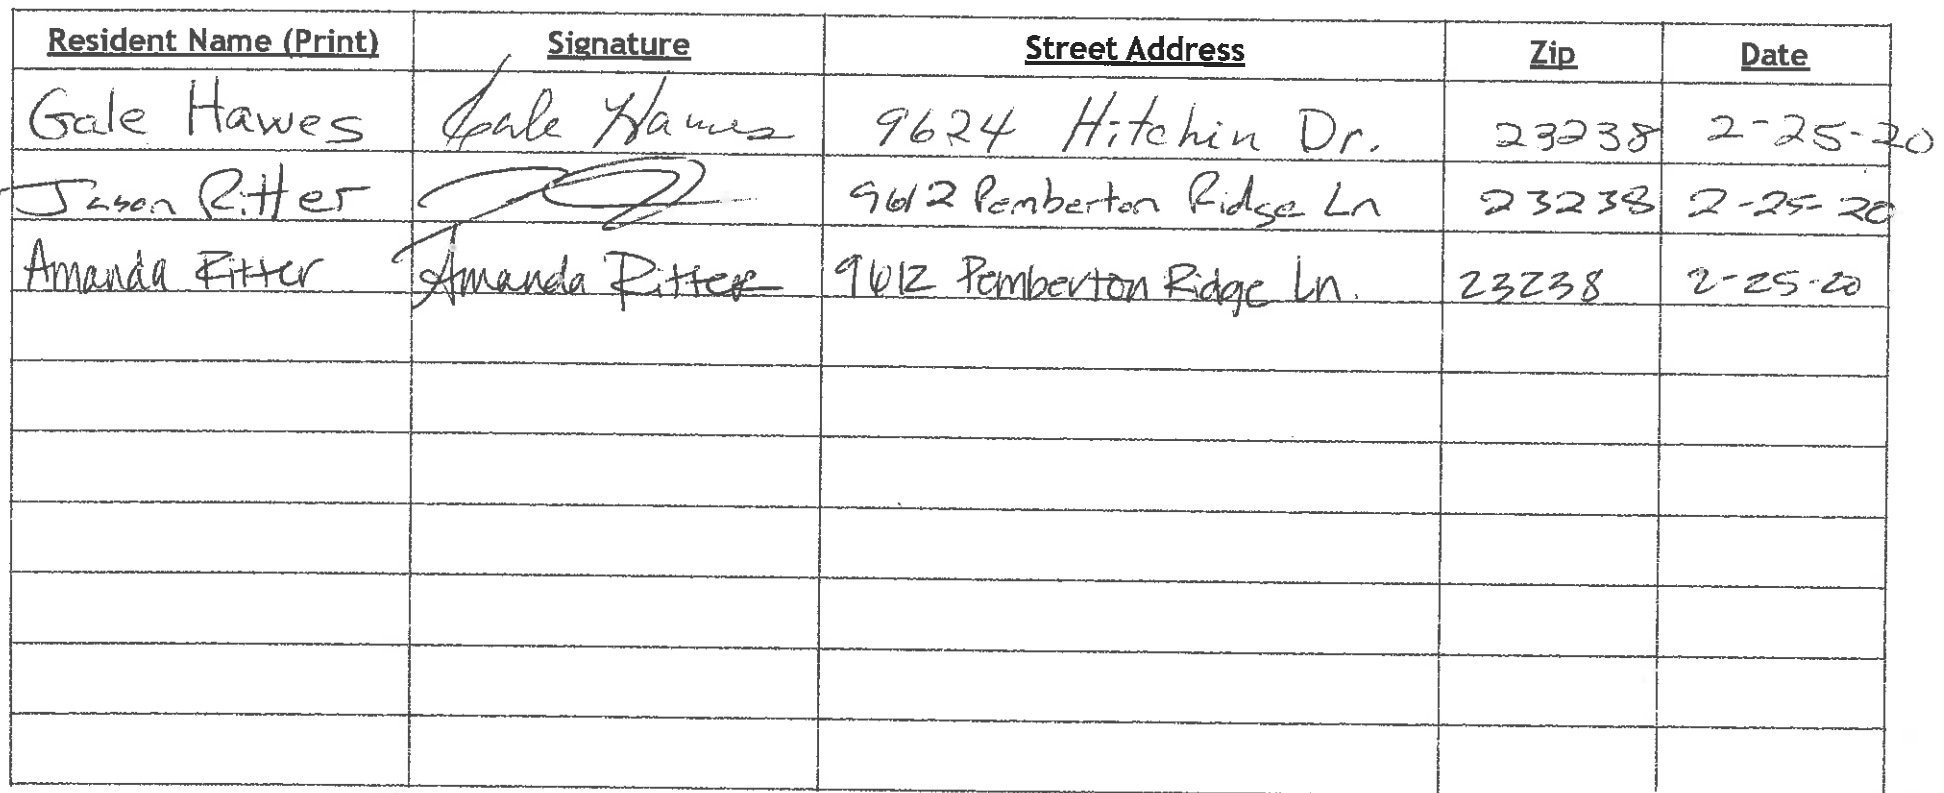 Resident Name (Print) Signature Street Address Zip Date
Gale Hawes Gale Hawes 9624 Hitchin Dr. 23238 2-25-20
Jason Ritter 9612 Pemberton Ridge Ln 23238 2-25-20
Amanda Ritter Amanda Ritter 9612 Pemberton Ridge Ln. 23238 2-25-20